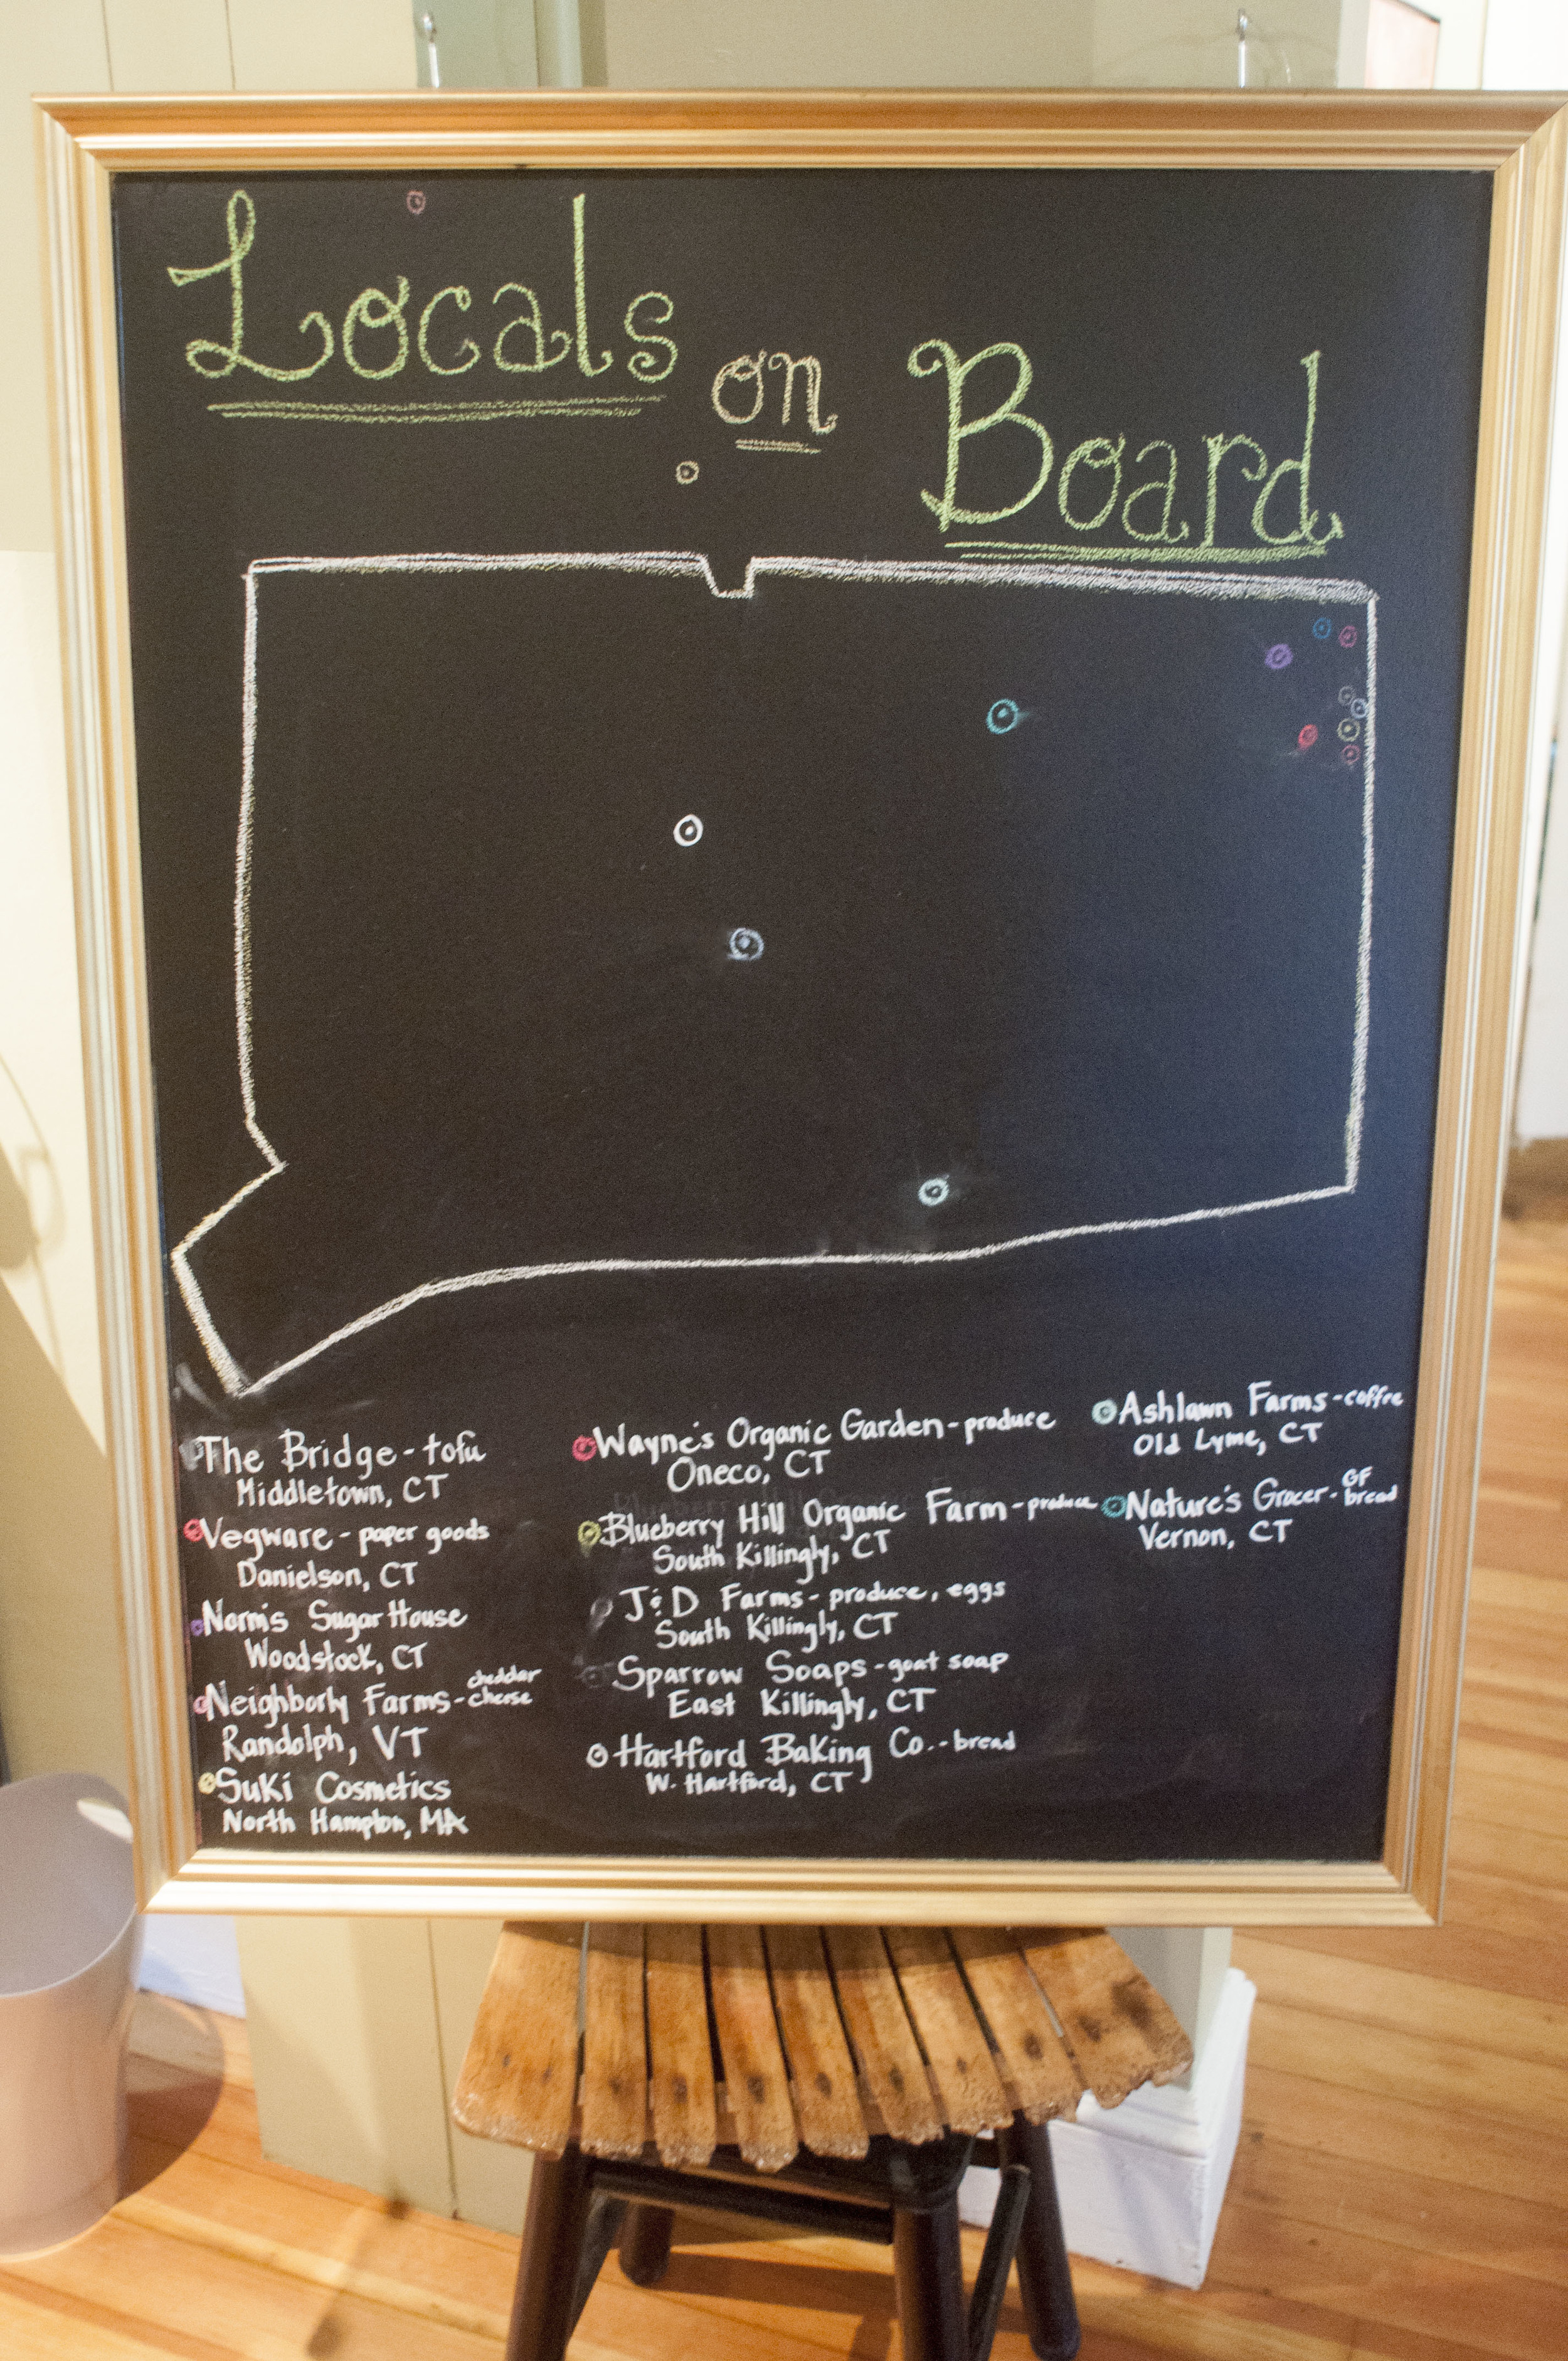 Locals on Board
The Bridge - tofu
Middletown, CT
Vegware - paper goods
Danielson, CT
Norm's Sugar House
Woodstock, CT
Neighborly Farms - cheddar cheese
Randolph, VT
Suki Cosmetics
North Hampton, MA
Wayne's Organic Garden - produce
Oneco, CT
Blueberry Hill Organic Farm - produce
South Killingly, CT
J&D Farms - produce, eggs
South Killingly, CT
Sparrow Soaps - goat soap
East Killingly, CT
Hartford Baking Co. - bread
W. Hartford, CT
Ashlawn Farms - coffee
Old Lyme, CT
Nature's Grocer - GF bread
Vernon, CT